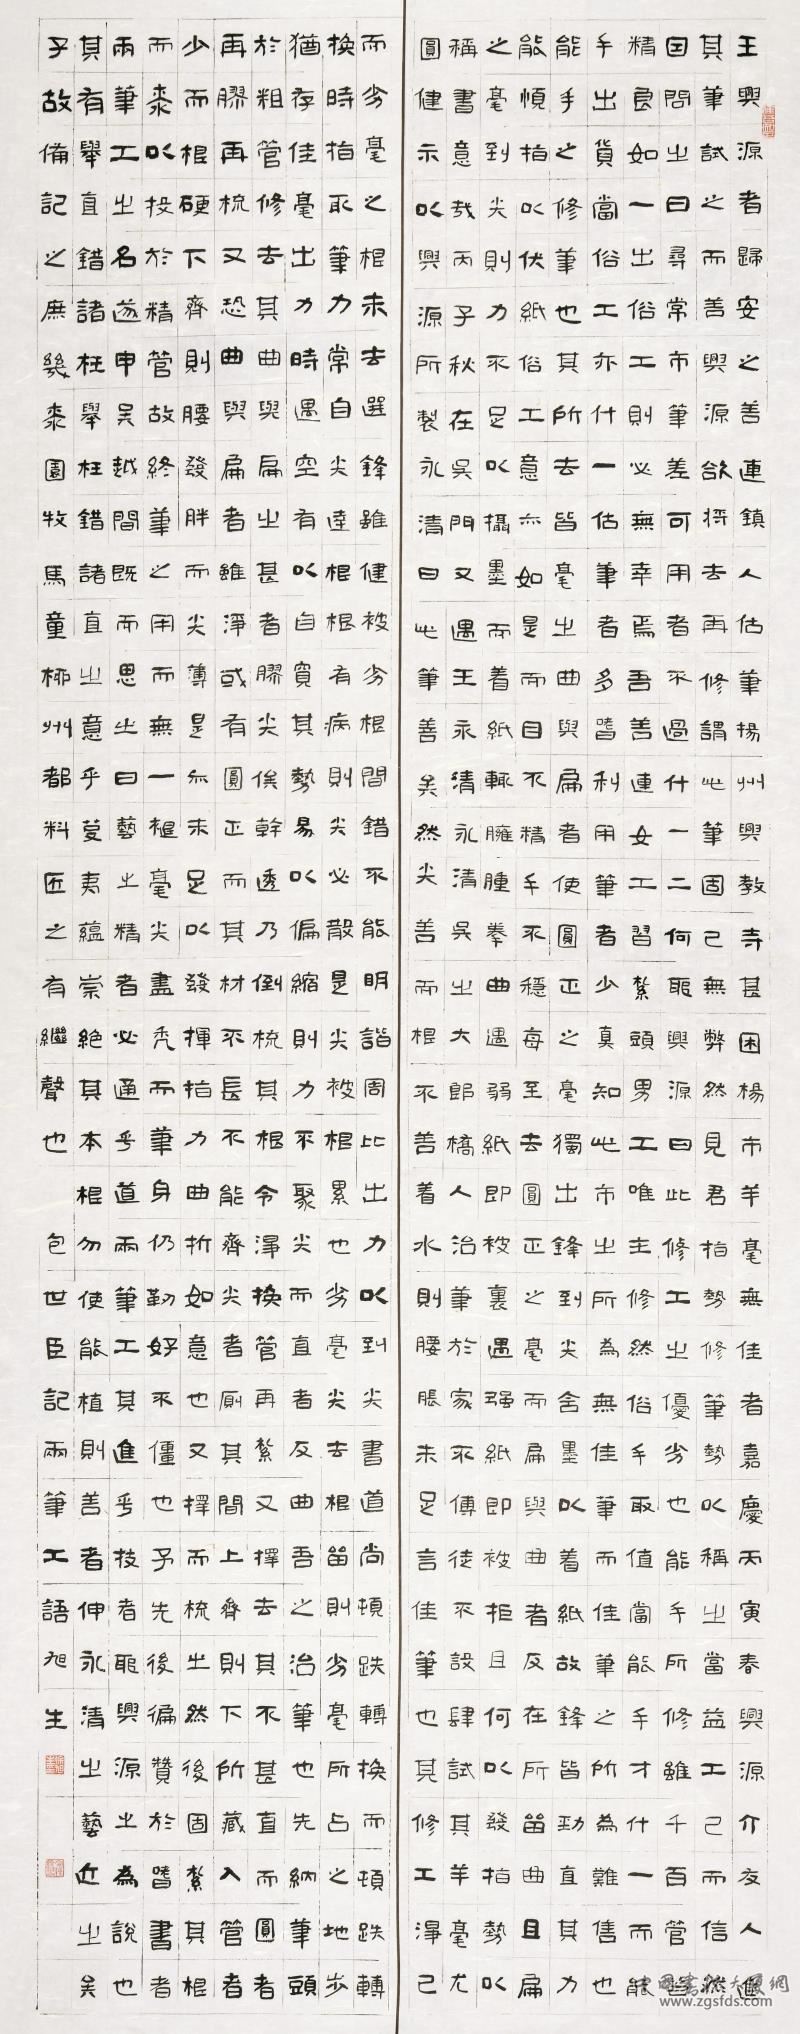 王興源者歸安之善連鎮人估筆揚州興教寺甚困楊市羊毫無佳者嘉慶丙寅春興源介友人進
其筆試之而善興源欲捋去再修謂此筆固已無弊然見君指勢修筆勢以稱之當益工已而信然
因問之曰尋常市筆差可用者不過什一二何耶興源曰此修工之優劣也能手所修雖千百管皆
精良如一出俗工則必無幸焉吾善連女工習紮頭男工唯主修然俗手取值當能手才什一而能
手出貨當俗工亦什一估筆者多嗜利用筆者少真知此市之所為無佳筆而佳筆之所為難售也
能手之修筆也其所去皆毫之曲與扁者使圓正之毫獨出鋒到尖含墨以着紙故鋒皆勁直其力
能順指以伏紙俗工意亦如是而目不精手不穩每至去圓正之毫而扁與曲者反在所留曲且扁
之毫到尖則力不足以攝墨而着紙輒臃腫拳曲遇弱紙即被裹遇强紙即被拒且何以發指勢以
稱書意哉丙子秋在吳門又遇王永清永清吳之大郎橋人治筆於家不傅徒不設肆試其羊毫尤
圓健示以興源所製永清曰此筆善矣然尖善而根不善着水則腰脹未足言佳筆也其修工淨已
而劣毫之根未去選鋒雖健被劣根間錯不能明諧周比出力以到尖書道尚頓跌轉換而頓跌轉
換時指取筆力常自尖達根根有病則尖必散是尖被根累也劣毫尖去根留則劣毫所占之地步
猶存佳毫出力時遇空有以自寬其勢易以偏縮則力不聚尖而直者反曲吾之治筆也先納筆頭
於粗管修去其曲與扁之甚者膠尖俟幹透乃倒梳其根令淨換管再紮又擇去其不甚直而圓者
再膠再梳又恐曲與扁者雖淨或有圓正而其材不長不能齊尖者廁其間上齊則下所藏入管者
少而根硬下齊則腰發胖而尖薄是亦未足以發揮指力曲折如意也又擇而梳之然後固紮其根
而桼以投於精管故終筆之用而無一褪毫尖盡禿而筆身仍韌好不僵也予先後徧贊於嗜書者
兩筆工之名遂申吳越間既而思之曰藝之精者必通乎道兩筆工其進乎技者耶興源之為說也
其有舉直錯諸枉舉枉錯諸直之意乎芟夷蘊崇絕其本根勿使能植則善者伸永清之藝近之矣
予故備記之庶幾桼園牧馬童栁州都料匠之有繼聲也 包世臣記兩筆工語旭生
中國書法大厦網
www.zgsfds.com